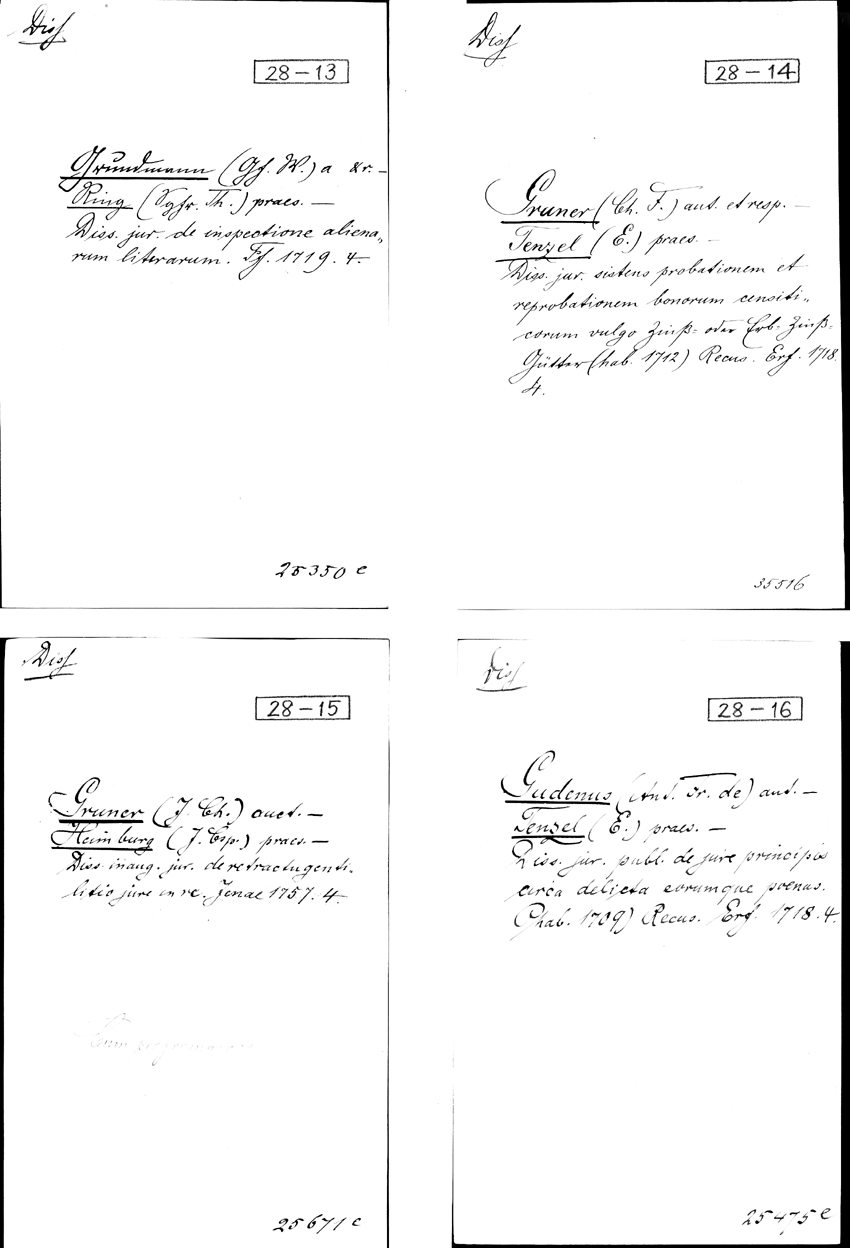 Diss
28-13
Grundmann (Gf. W.) a & r. —
Ring (Sghr. Th.) praes. —
Diss. jur. de inspectione aliena„
rum literarum. Ff. 1719. 4.
25350 e
Diss
28-14
Gruner (Ch. F.) aut. et resp. —
Tenzel (E.) praes. —
Diss. jur. sistens probationem et
reprobationem bonorum censiti„
corum vulgo Zinß- oder Erb-Zinß-
Gütter (hab. 1712) Recus. Erf. 1718.
4.
35516
Diss
28-15
Gruner (J. Ch.) auct. —
Heimburg (J. Csp.) praes. —
Diss. inaug. jur. de retractu genti-
litio jure in re. Jenae 1757. 4.
25671 e
Diss
28-16
Gudenus (Ant. Fr. de) aut. —
Tenzel (E.) praes. —
Diss. jur. publ. de jure principis
circa delicta eorumque poenas.
(hab. 1709) Recus. Erf. 1718. 4.
25475 e